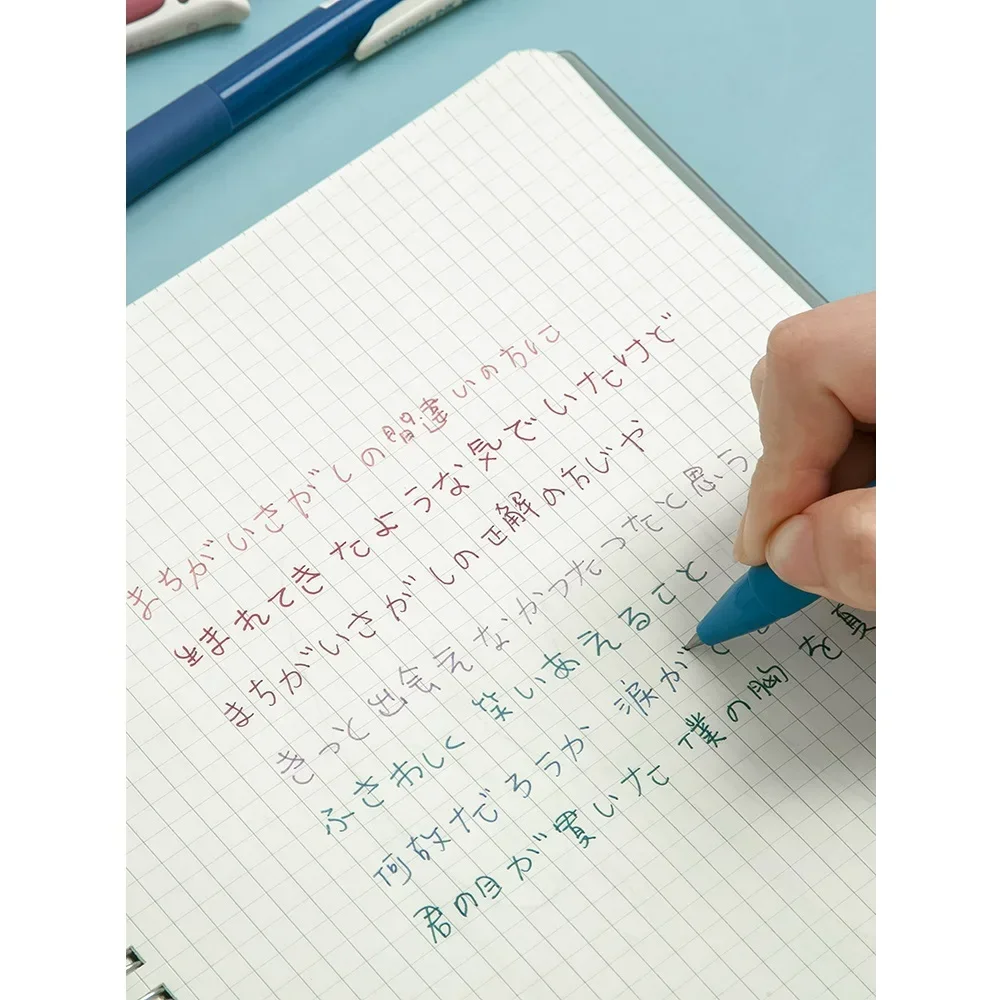 まちがいさがしの間違いの方に
生まれてきたような気でいたけど
まちがいさがしの正解の方じゃ
きっと出会えなかったと思う
ふさわしく 笑いあえること
何故だろうか 涙が
君の目が貫いた 僕の胸を真